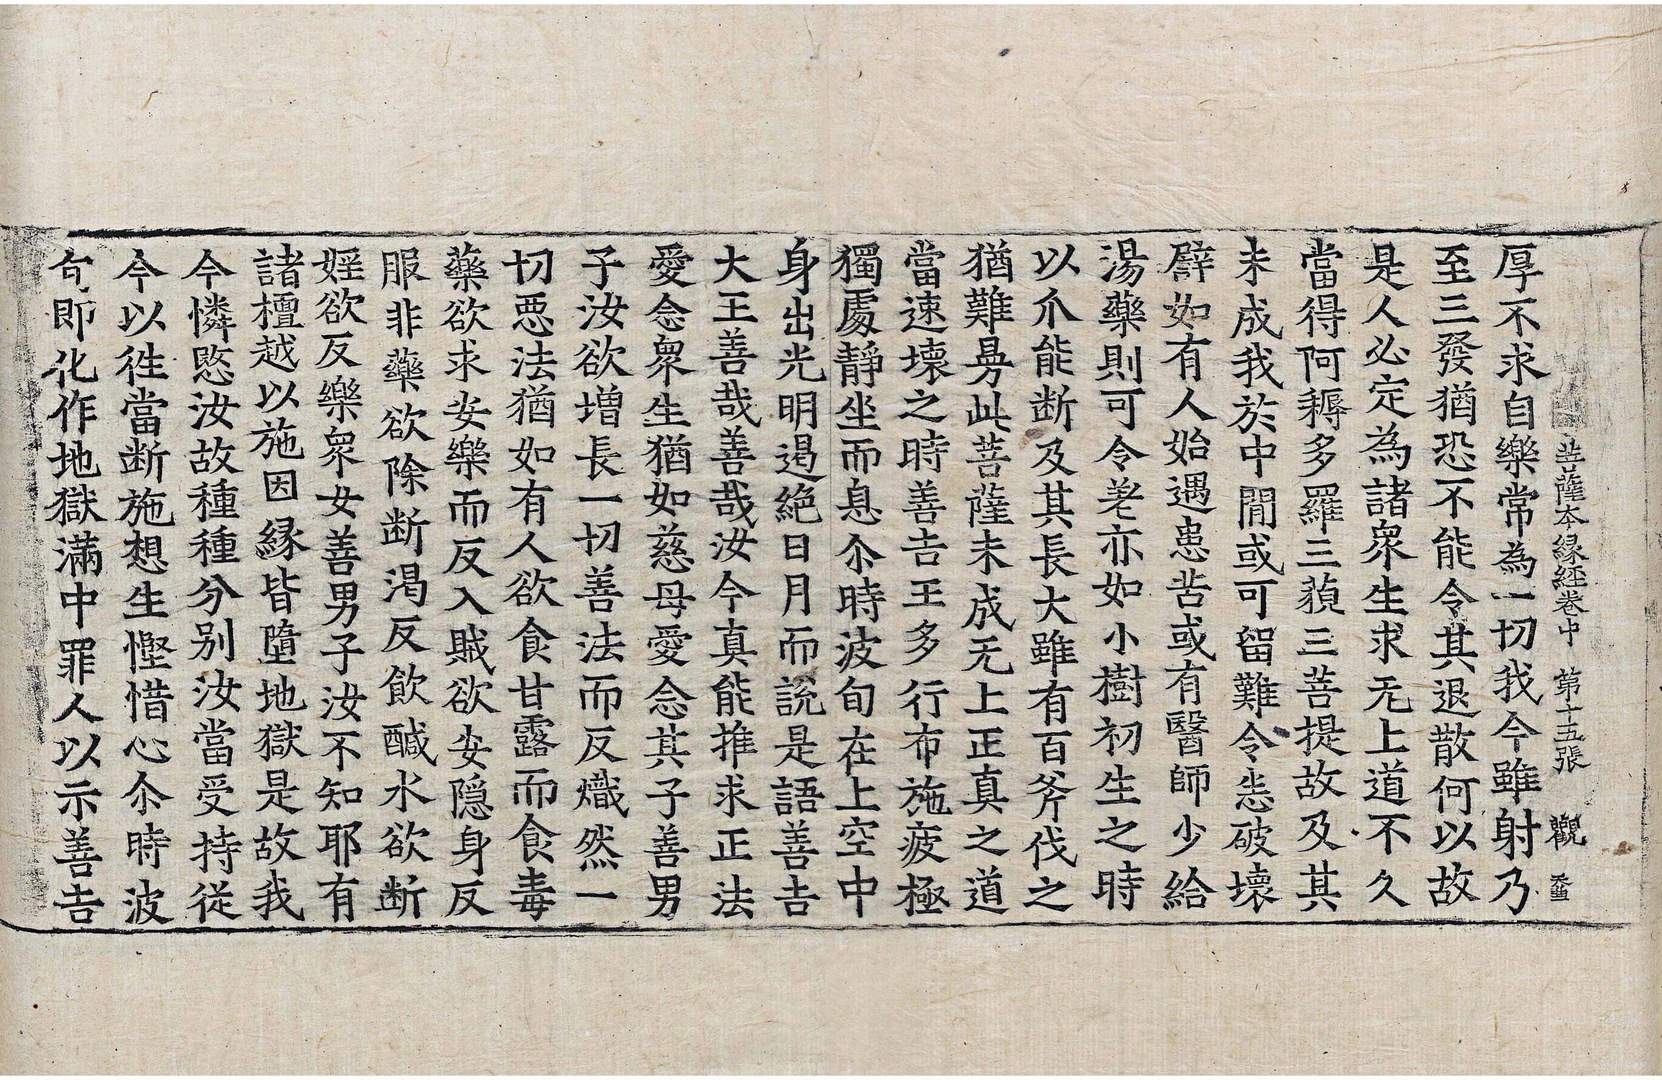 菩薩本緣經卷中 第十五張 觀
厚不求自樂常為一切我今雖射乃
至三發猶恐不能令其退散何以故
是人必定為諸衆生求无上道不久
當得阿耨多羅三藐三菩提故及其
未成我於中間或可留難令恚破壞
譬如有人始遇患苦或有醫師少給
湯藥則可令差亦如小樹初生之時
以爪能断及其長大雖有百斧伐之
猶難是此菩薩未成无上正真之道
當速壞之時善吉王多行布施疲極
獨處靜坐而息尒時波旬在上空中
身出光明遏絶日月而說是語善吉
大王善哉善哉汝今真能推求正法
愛念衆生猶如慈母愛念其子善男
子汝欲增長一切善法而反熾然一
切惡法猶如有人欲食甘露而食毒
藥欲求安樂而反入賊欲安隱身反
服非藥欲除断渴反飲醎水欲断
婬欲反樂衆女善男子汝不知耶有
諸檀越以施因緣皆墮地獄是故我
今憐愍汝故種種分別汝當受持從
今以往當断施想生慳惜心尒時波
旬即化作地獄滿中罪人以示善吉